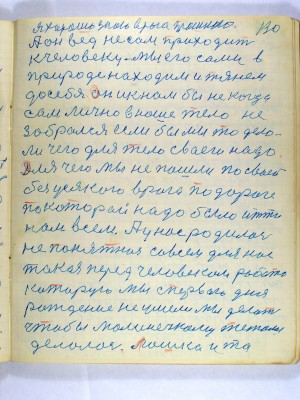 я хорошо знаю врага причину. 130
А он вед не сам приходит
к человеку. мы его сами в
природе находим и тянем
до себя. он и к нам бы не когда
сам лично в наше тело не
забрался если бы мы то дела-
ли чего для тело своего надо
Для чего мы не пошли по своей
без усякого врага по дороге
по которой надо было итти
нам всем. А у нас родилась
не понятная совсем для нас
такая перед человеком работа
которую мы с первого дня
рождение не умели мы делать
чтобы малинечкому тетали
делолоя. мошка и та